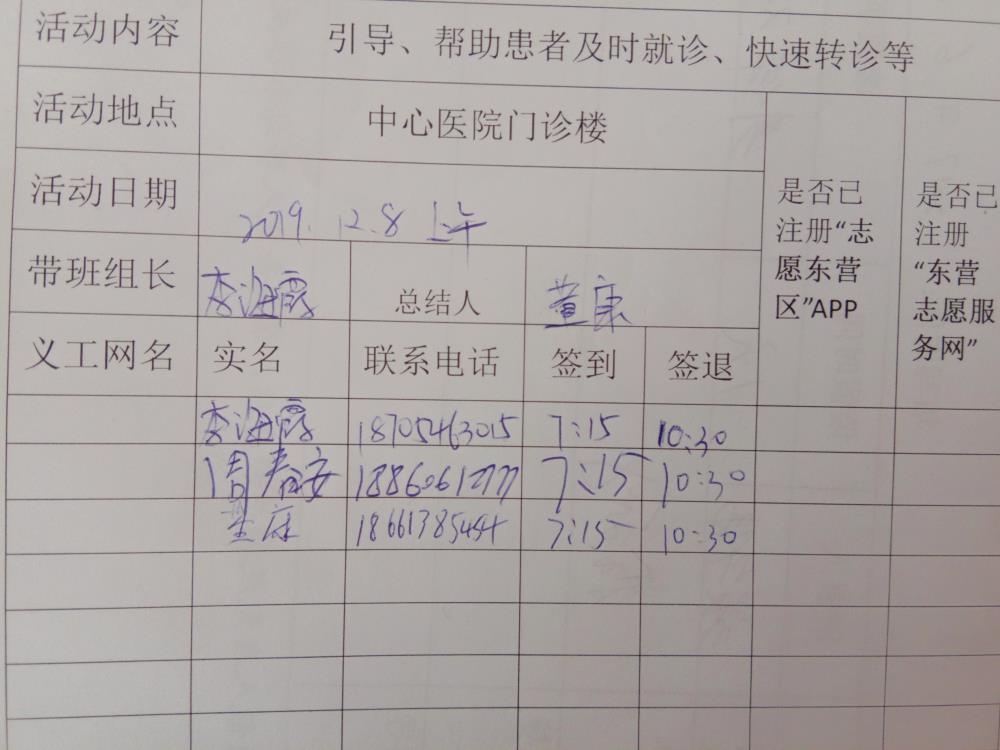 活动内容 引导、帮助患者及时就诊、快速转诊等
活动地点 中心医院门诊楼
活动日期 2019.12.8 上午
是否已注册“志愿东营区”APP
是否已注册“东营志愿服务网”
带班组长 李海霞 总结人 董康
义工网名 实名 联系电话 签到 签退
李海霞 18705463015 7:15 10:30
周春安 7:15 10:30
董康 7:15 10:30